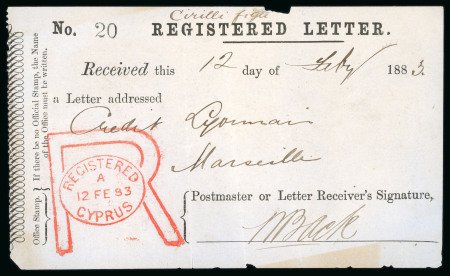 Cirilli figli
No. 20 REGISTERED LETTER.
Received this 12 day of Feby 1883.
a Letter addressed
Credit Lyonnais
Marseille
Postmaster or Letter Receiver's Signature,
Back
If there be no Official Stamp, the Name
of the Office must be written.
Office Stamp.
R
REGISTERED
A
12 FE 83
CYPRUS